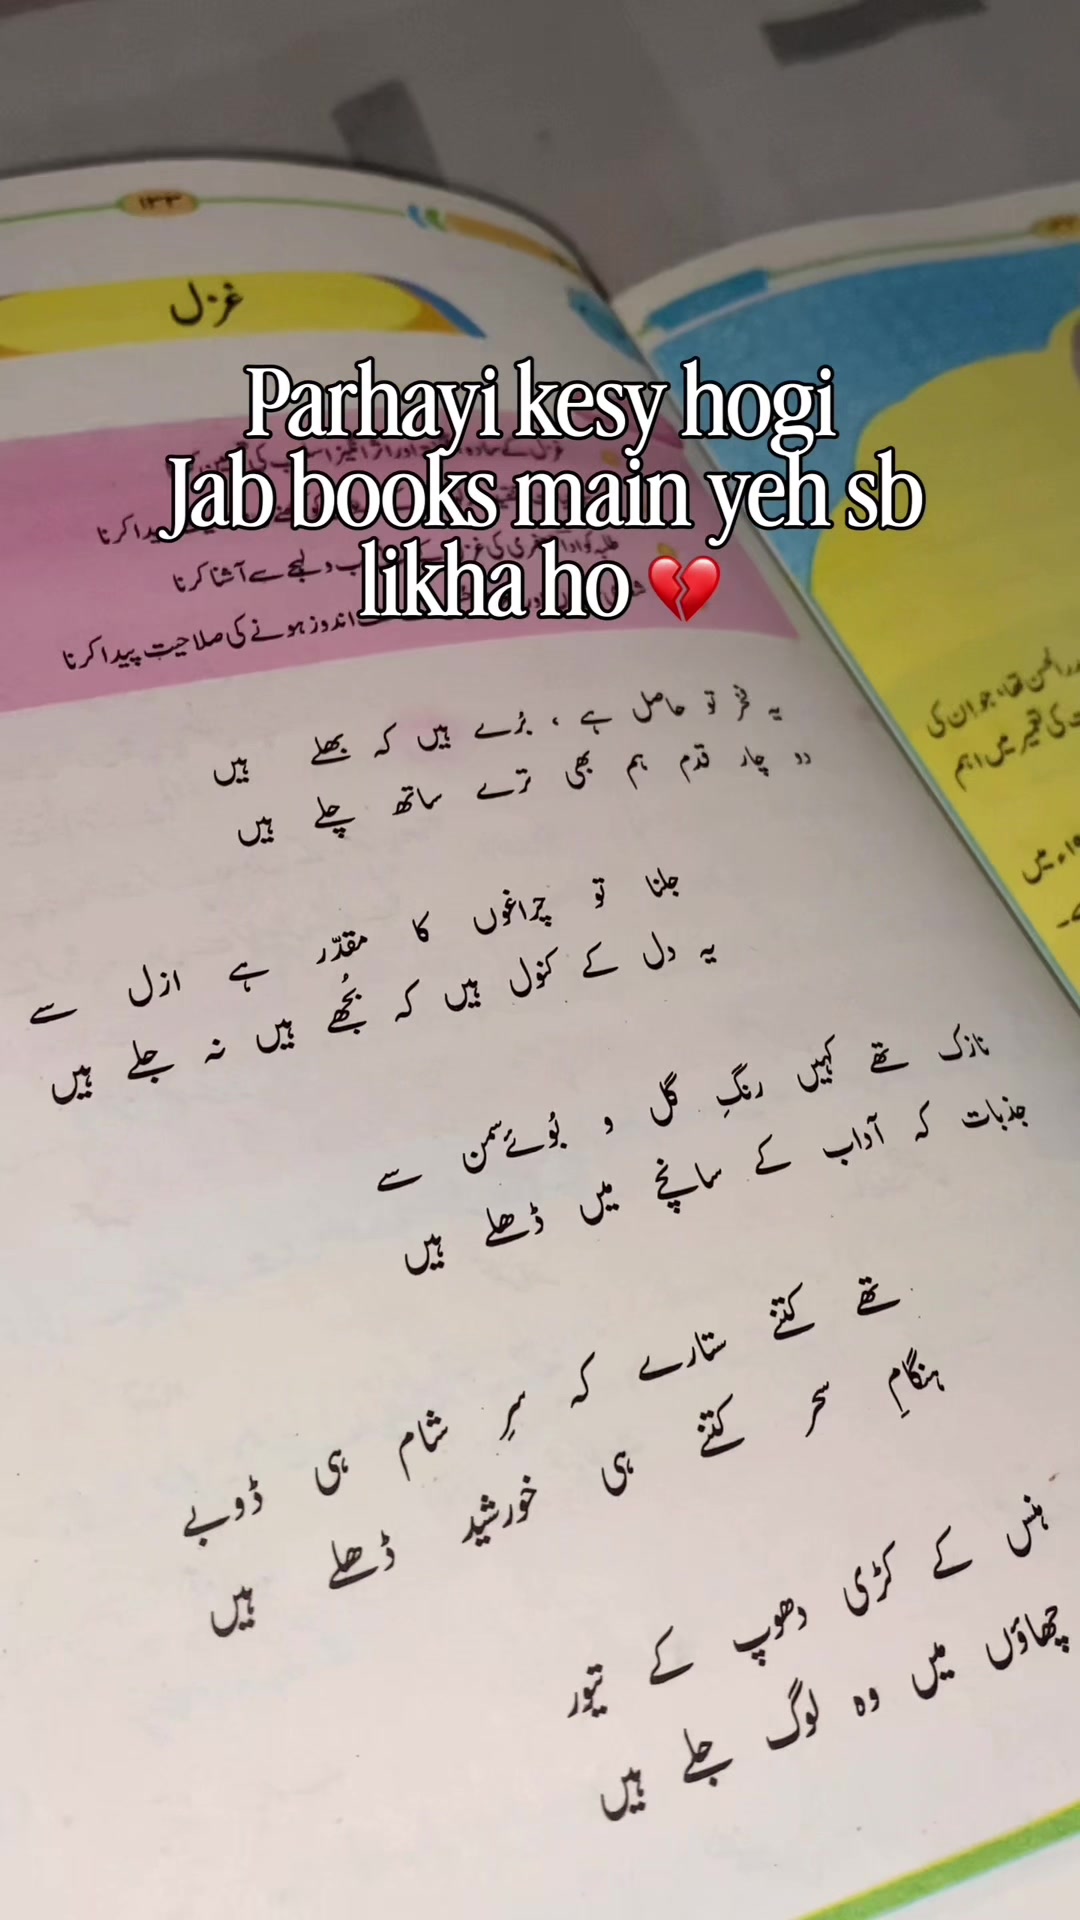 ۱۳۳
غزل
Parhayi kesy hogi
Jab books main yeh sb
likha ho 💔
غزل کے سادہ اور اثر انگیز کی
پیدا کرنا
طلبہ کو ادا جعفری کی غزل و لہجے سے آشنا کرنا
اندوز ہونے کی صلاحیت پیدا کرنا
یہ فخر تو حاصل ہے ، بُرے ہیں کہ بھلے ہیں
دو چار قدم ہم بھی ترے ساتھ چلے ہیں
جلنا تو چراغوں کا مقدّر ہے ازل سے
یہ دل کے کنول ہیں کہ بُجھے ہیں نہ جلے ہیں
نازک تھے کہیں رنگِ گل و بُوئے سمن سے
جذبات کہ آداب کے سانچے میں ڈھلے ہیں
تھے کتنے ستارے کہ سرِ شام ہی ڈوبے
ہنگامِ سحر کتنے ہی خورشید ڈھلے ہیں
ہنس کے کڑی دھوپ کے تیور
چھاؤں میں وہ لوگ جلے ہیں
تھا، جو ان کی
کی تعمیر میں اہم
میں